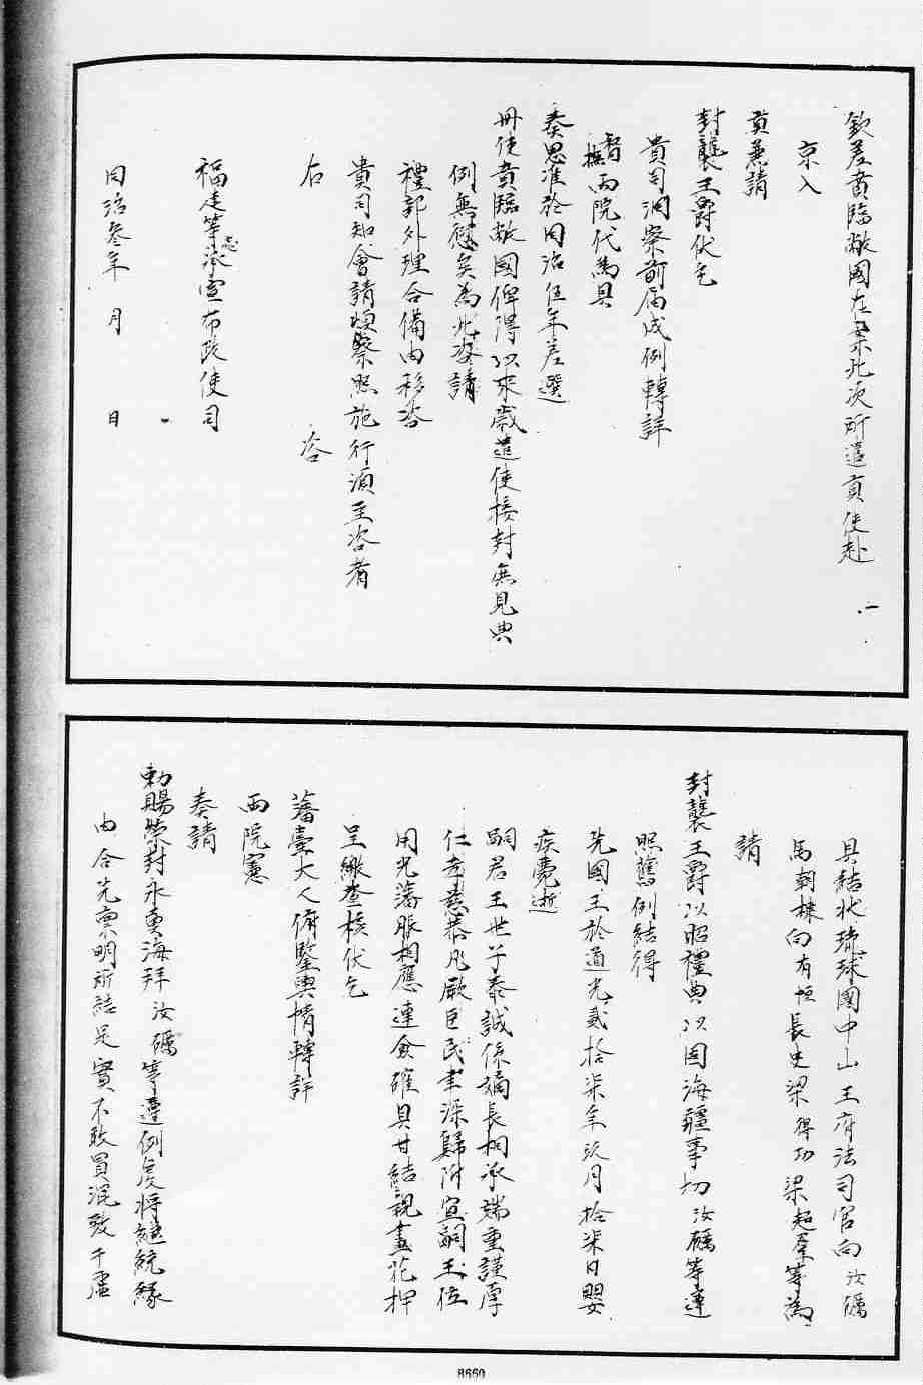 欽差賁臨敝國在案此次所遣貢使赴
京入
貢兼請
封襲王爵伏乞
貴司洞察前届成例轉詳
督撫兩院代為具
奏恩准於同治伍年差選
冊使賁臨敝國俾得以來歲遣使接封庶見典
例無愆矣為此咨請
禮部外理合備由移咨
貴司知會請煩察照施行須至咨者
右 咨
福建等處承宣布政使司
同治叁年 月 日
具結狀琉球國中山王府法司官向汝礪
馬朝棟向有恒長史梁得功梁超羣等為
請
封襲王爵以昭禮典以固海疆事切汝礪等遵
照舊例結得
先國王於道光貳拾柒年玖月拾柒日嬰
疾薨逝
嗣君王世子泰誠係嫡長相承端重謹厚
仁孝慈恭凡厥臣民聿深歸附宜嗣王位
用光藩服相應連僉確具甘結親畫花押
呈繳查核伏乞
藩臺大人俯鑒輿情轉詳
兩院憲
奏請
勅賜榮封永奠海邦汝礪等遵例度將繼統緣
由合先稟明所結是實不敢冒混致干虛
8660